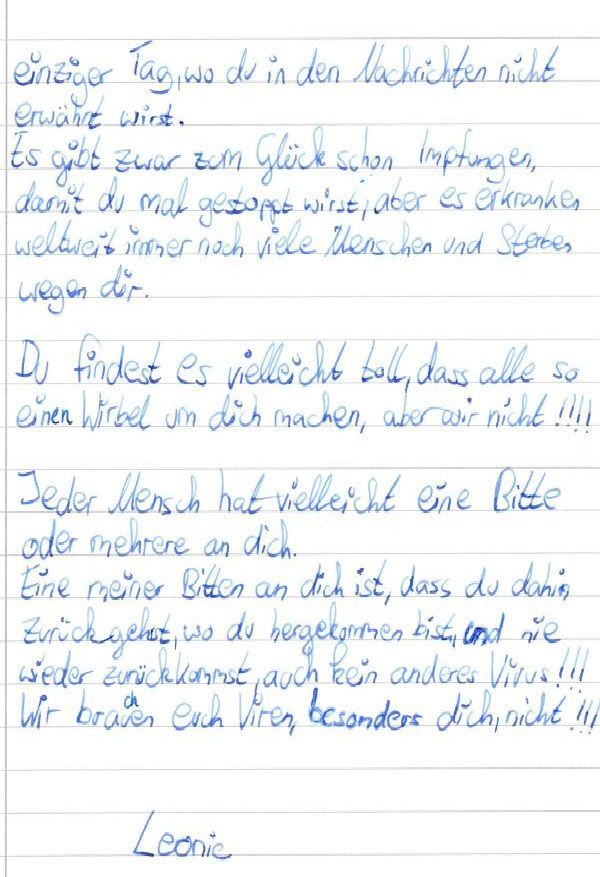 einziger Tag, wo du in den Nachrichten nicht
erwähnt wirst.
Es gibt zwar zum Glück schon Impfungen,
damit du mal gestoppt wirst, aber es erkranken
weltweit immer noch viele Menschen und Sterben
wegen dir.
Du findest es vielleicht toll, dass alle so
einen Wirbel um dich machen, aber wir nicht!!!!
Jeder Mensch hat vielleicht eine Bitte
oder mehrere an dich.
Eine meiner Bitten an dich ist, dass du dahin
zurück gehst, wo du hergekommen bist, und nie
wieder zurückkommst, auch kein anderes Virus!!!
Wir brauchen euch Viren, besonders dich, nicht!!!
Leonie